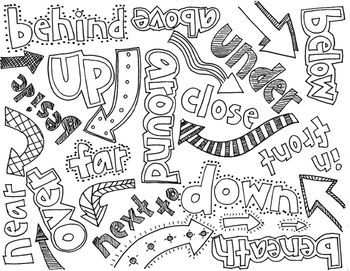 behind
above
under
below
up
beside
around
close
in
front
far
near
over
next to
down
beneath